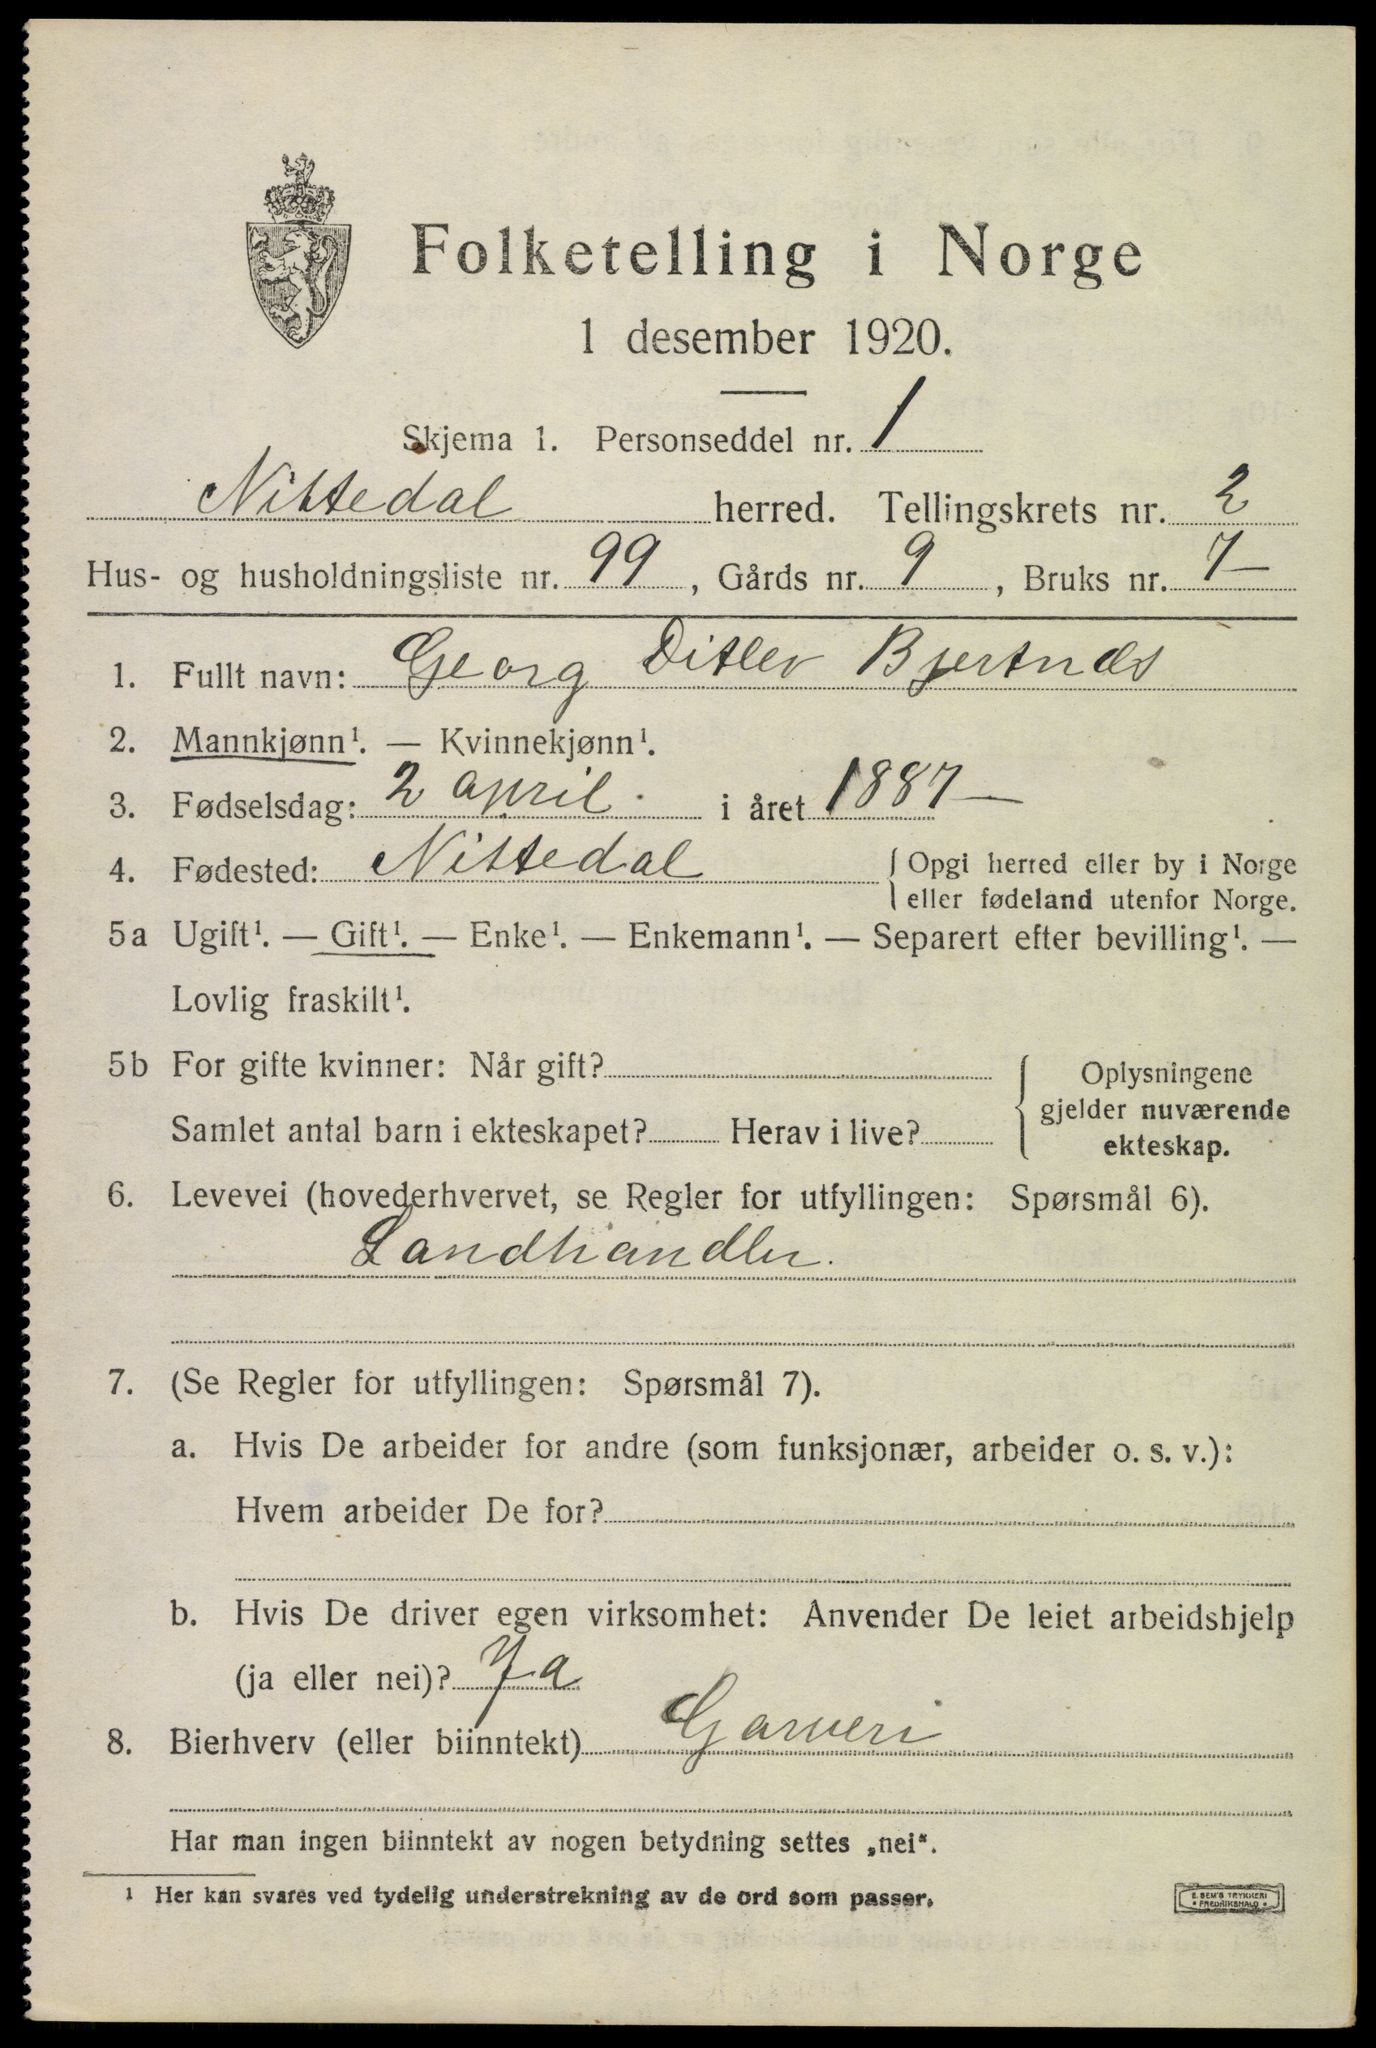 Folketelling i Norge
1 desember 1920.
Skjema 1. Personseddel nr. 1
Nittedal herred. Tellingskrets nr. 2
Hus- og husholdningsliste nr. 99, Gårds nr. 9, Bruks nr. 7
1. Fullt navn: Georg Ditlev Bjertnæs
2. Mannkjønn¹. — Kvinnekjønn¹.
3. Fødselsdag: 2 april i året 1887
4. Fødested: Nittedal { Opgi herred eller by i Norge
eller fødeland utenfor Norge.
5a Ugift¹. — Gift¹. — Enke¹. — Enkemann¹. — Separert efter bevilling¹. —
Lovlig fraskilt¹.
5b For gifte kvinner: Når gift?
Samlet antal barn i ekteskapet? Herav i live?
{ Oplysningene
gjelder nuværende
ekteskap.
6. Levevei (hovederhvervet, se Regler for utfyllingen: Spørsmål 6).
Landhandler.
7. (Se Regler for utfyllingen: Spørsmål 7).
a. Hvis De arbeider for andre (som funksjonær, arbeider o. s. v.):
Hvem arbeider De for?
b. Hvis De driver egen virksomhet: Anvender De leiet arbeidshjelp
(ja eller nei)? Ja
8. Bierhverv (eller biinntekt) Garveri
Har man ingen biinntekt av nogen betydning settes „nei“.
¹ Her kan svares ved tydelig understrekning av de ord som passer.
E. SEM'S TRYKKERI
• FREDRIKSHALD •